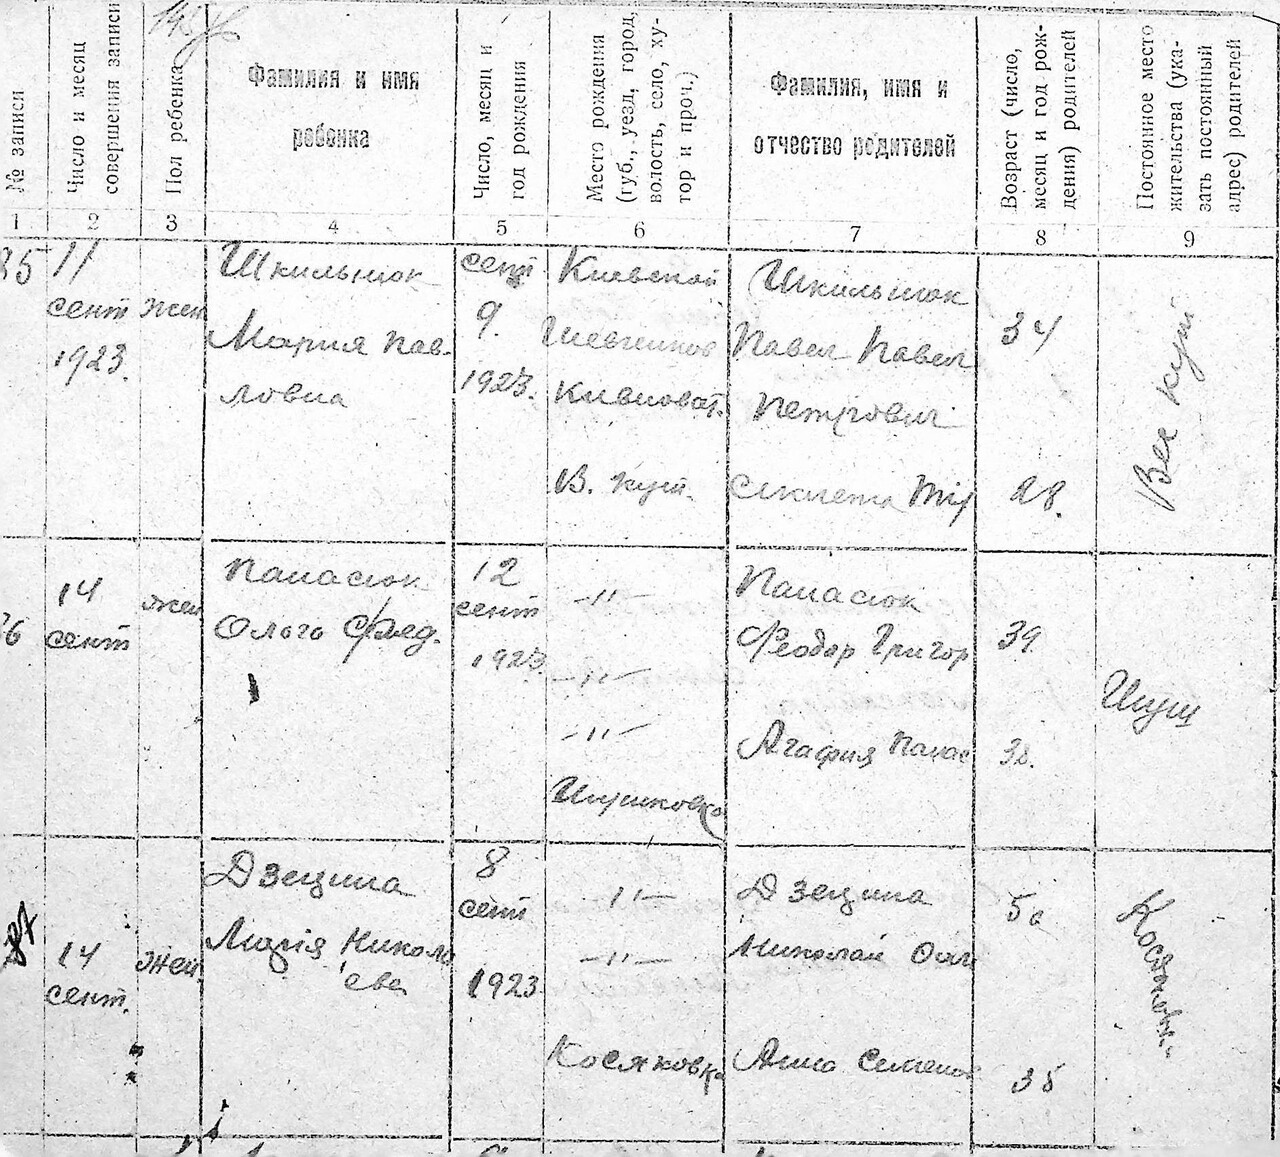 № записи
Число и месяц
совершения записи
Пол ребенка
Фамилия и имя
ребенка
Число, месяц и
год рождения
Место рождения
(губ., уезд, город,
волость, село, ху-
тор и проч.)
Фамилия, имя и
отчество родителей
Возраст (число,
месяц и год рож-
дения) родителей
Постоянное место
жительства (ука-
зать постоянный
адрес) родителей
1 2 3 4 5 6 7 8 9
85
11
сент
1923.
жен
Шкильнюк
Мария Пав-
ловна
сент
9.
1923.
Киевской
Шевченков
Кившоват.
В. Кут.
Шкильнюк
Павел Павел
Петрович
34
28.
Вел Кут
14
сент
жен
Панасюк
Ольга Фед.
12
сент
1923
-"-
-"-
-"-
Панасюк
Феодор Григор
Агафия Панас
39
38.
87
14
сент.
жен.
Дзецина
Марія Никола
ева
8
сент
1923
-"-
-"-
Косяковка
Дзецина
Николай
Анна Семенов
50
35
Косяковка